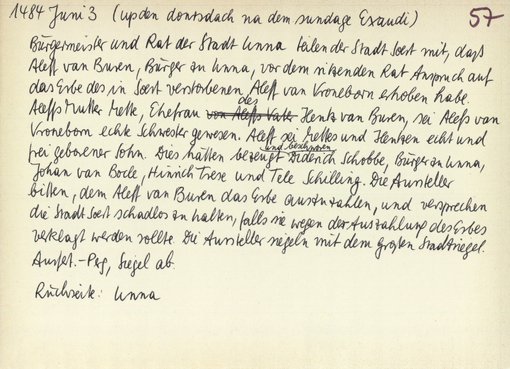 1484 Juni 3 (up den donrsdach na dem sundage Exaudi) 57
Bürgermeister und Rat der Stadt Unna teilen der Stadt Soest mit, daß
Aleff van Buren, Bürger zu Unna, vor dem sitzenden Rat Anspruch auf
das Erbe des in Soest verstorbenen Aleff van Vroneborn erhoben habe.
Aleffs Mutter Mette, Ehefrau von Aleffs Vater des Hentz van Buren, sei Alefs van
Vroneborn echte Schwester gewesen. Aleff sei Mettes und Hentzen echt und
frei geborener Sohn. Dies hätten bezeugt und beschworen Diderich Schobbe, Bürger zu Unna,
Johan van Boele, Hinrich Trese und Tele Schilling. Die Aussteller
bitten, dem Aleff van Buren das Erbe auszuzahlen, und versprechen
die Stadt Soest schadlos zu halten, falls sie wegen der Auszahlung des Erbes
verklagt werden sollte. Die Aussteller siegeln mit dem großen Stadtsiegel.
Ausf.-Perg, Siegel ab.
Rückseite: Unna